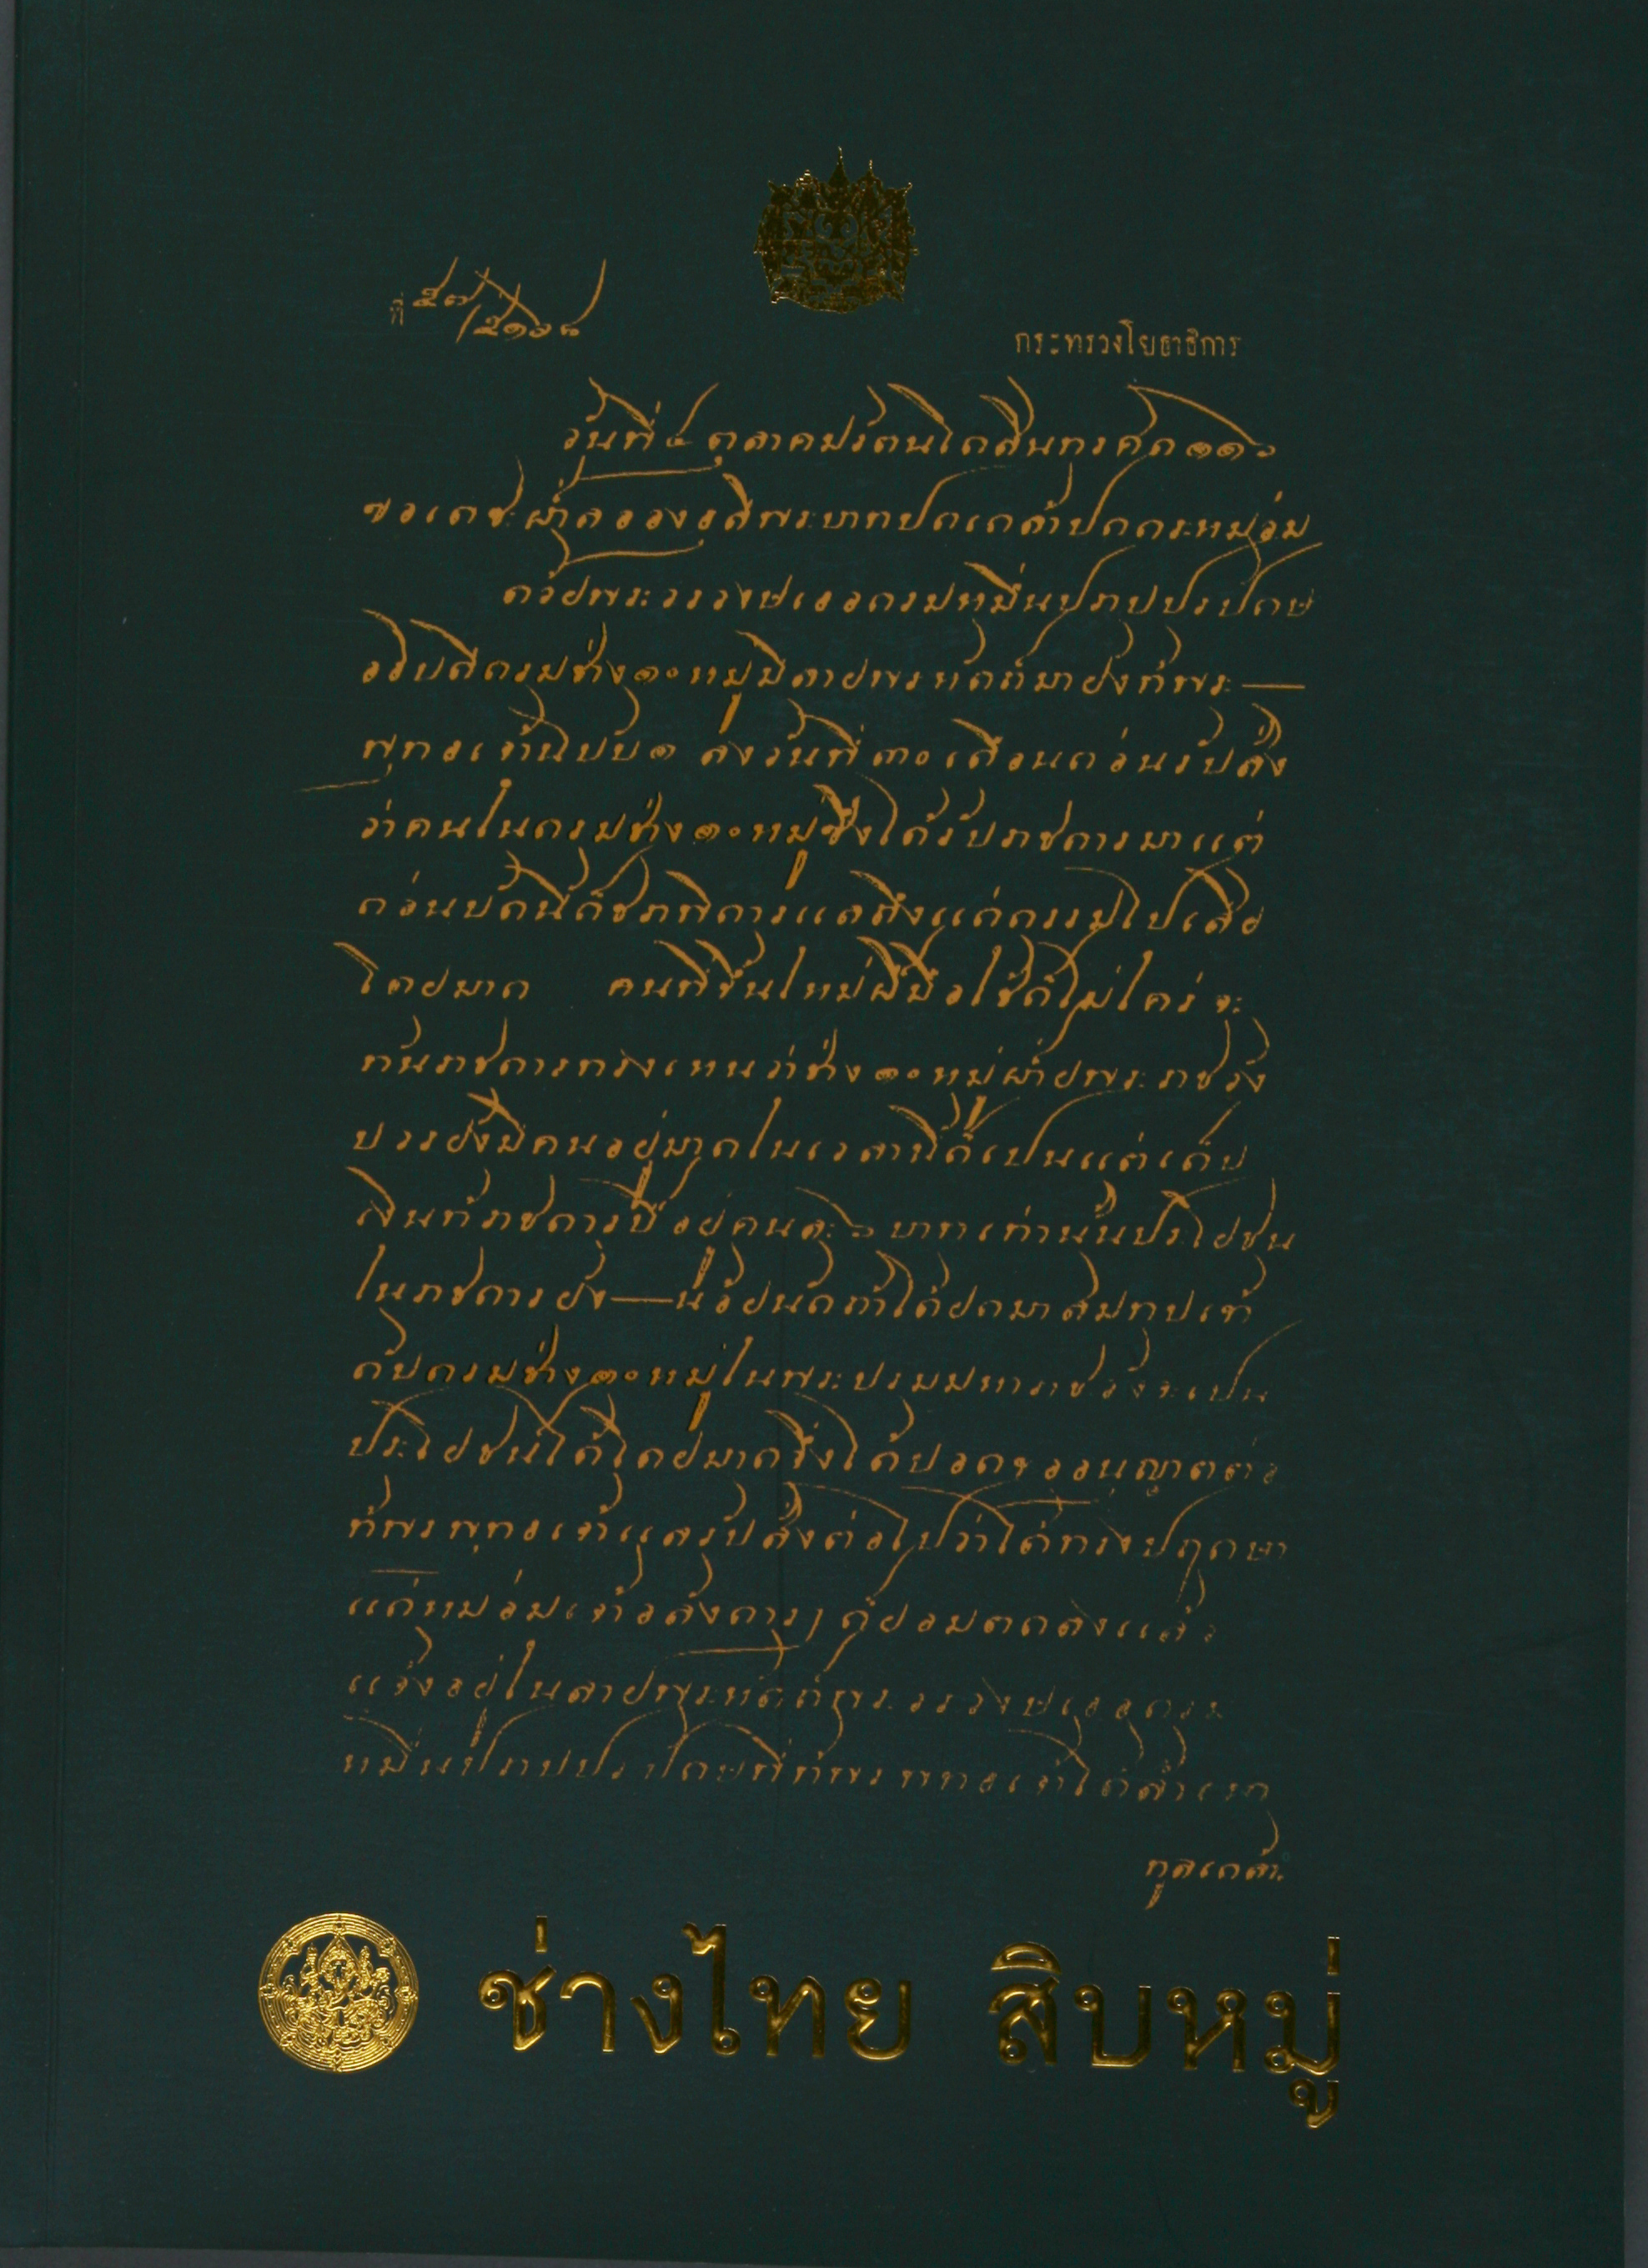 ที่
กระทรวงโยธาธิการ
วันที่ ๔ ตุลาคม รัตนโกสินทรศก ๑๑๖
ขอเดชะฝ่าลอองธุลีพระบาทปกเกล้าปกกระหม่อม
ด้วยพระวรวงษเธอกรมหมื่นปราบปรปักษ
อธิบดีกรมช่าง ๑๐ หมู่มีลายพระหัดถ์มายังท่านพระ —
ลงวันที่ ๓๐ เดือนก่อนรับสั่ง
ว่าคนในกรมช่าง ๑๐ หมู่ซึ่งได้รับราชการมาแต่
ก่อนบัดนี้ก็ชราพิการแลถึงแก่กรรมไปเสีย
โดยมาก คนที่ขึ้นใหม่ฝีมือใช้ก็ไม่ใคร่จะ
ทันราชการทรงเหนว่าช่าง ๑๐ หมู่ฝ่ายพระราชวัง
บวรยังมีคนอยู่มากในเวลานี้ก็เป็นแต่เก็บ
อยู่คนละ ๖ บาทเท่านั้นประโยชน
ในราชการยัง — น้อยนักถ้าได้ยกมาสมทบเข้า
กับกรมช่าง ๑๐ หมู่ในพระบรมมหาราชวังจะเป็น
ประโยชน์ได้โดยมากจึ่งได้ขออนุญาตต่อ
แลรับสั่งต่อไปว่าได้ทรงปฤกษา
แก่หม่อมเจ้าอลังการ ๆ ก็ยอมตกลงแล้ว
แจ้งอยู่ในลายพระหัดถ์พระวรวงษเธอกรม
หมื่นปราบปรปักษที่
ทูลเกล้าฯ
ช่างไทย สิบหมู่